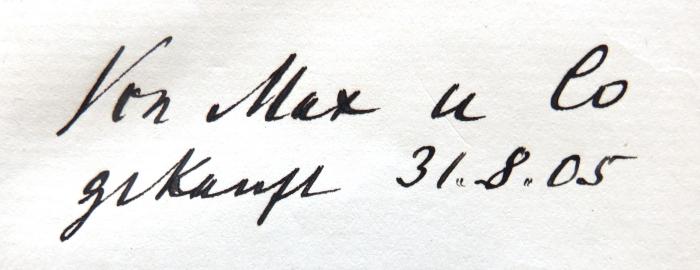 Von Max u Co
gekauft 31.8.05